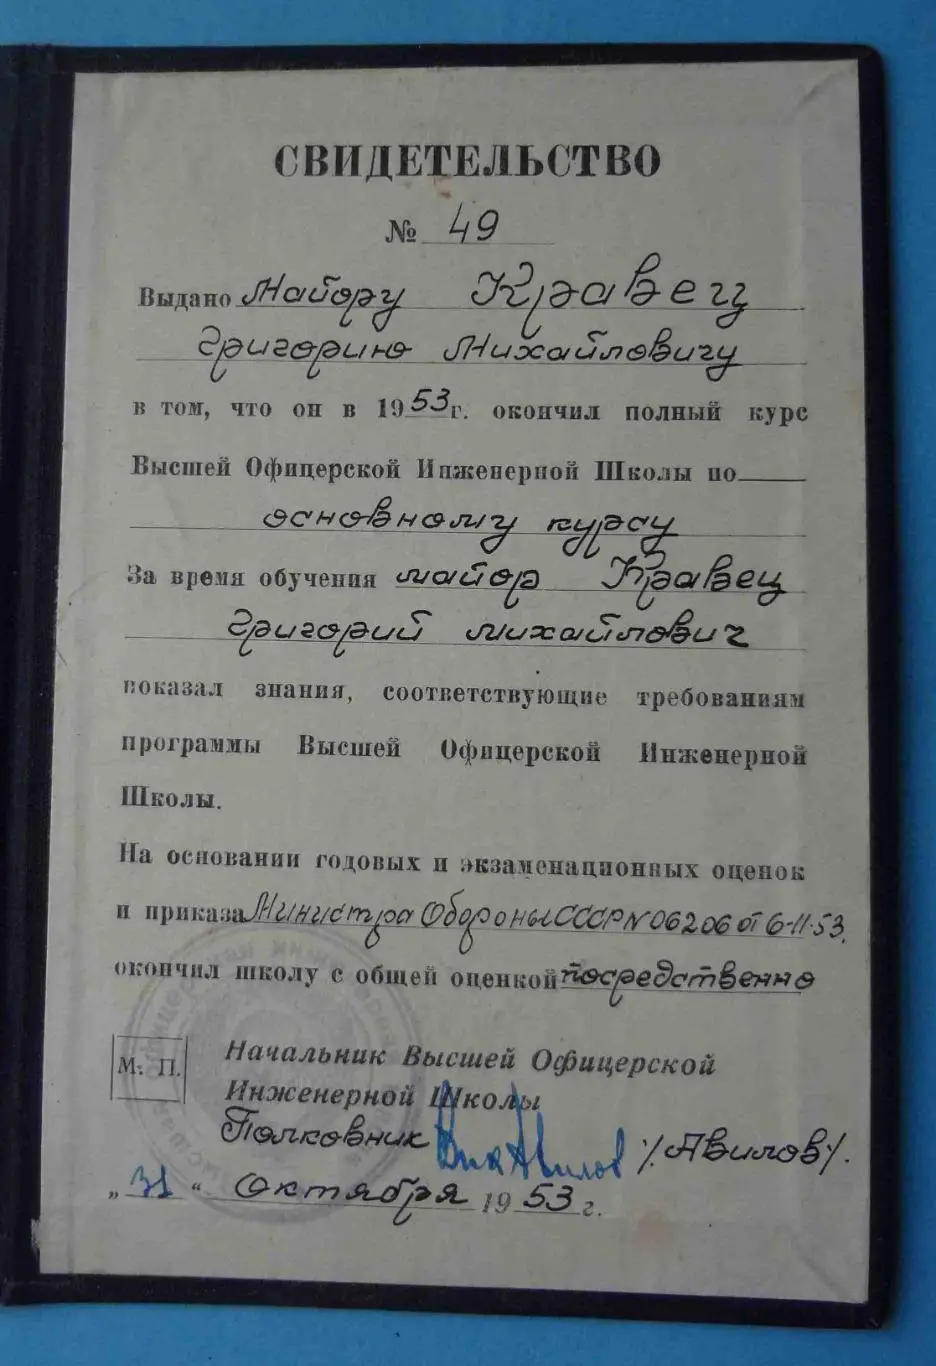 СВИДЕТЕЛЬСТВО
№ 49
Выдано Майору Кравец
Григорию Михайловичу
в том, что он в 1953 г. окончил полный курс
Высшей Офицерской Инженерной Школы по
основному курсу
За время обучения майор Кравец
Григорий Михайлович
показал знания, соответствующие требованиям
программы Высшей Офицерской Инженерной
Школы.
На основании годовых и экзаменационных оценок
и приказа Министра Обороны СССР N 06206 от 6-11-53.
окончил школу с общей оценкой посредственно
М. П.
Начальник Высшей Офицерской
Инженерной Школы
Полковник /Авилов/.
„31“ Октября 1953 г.